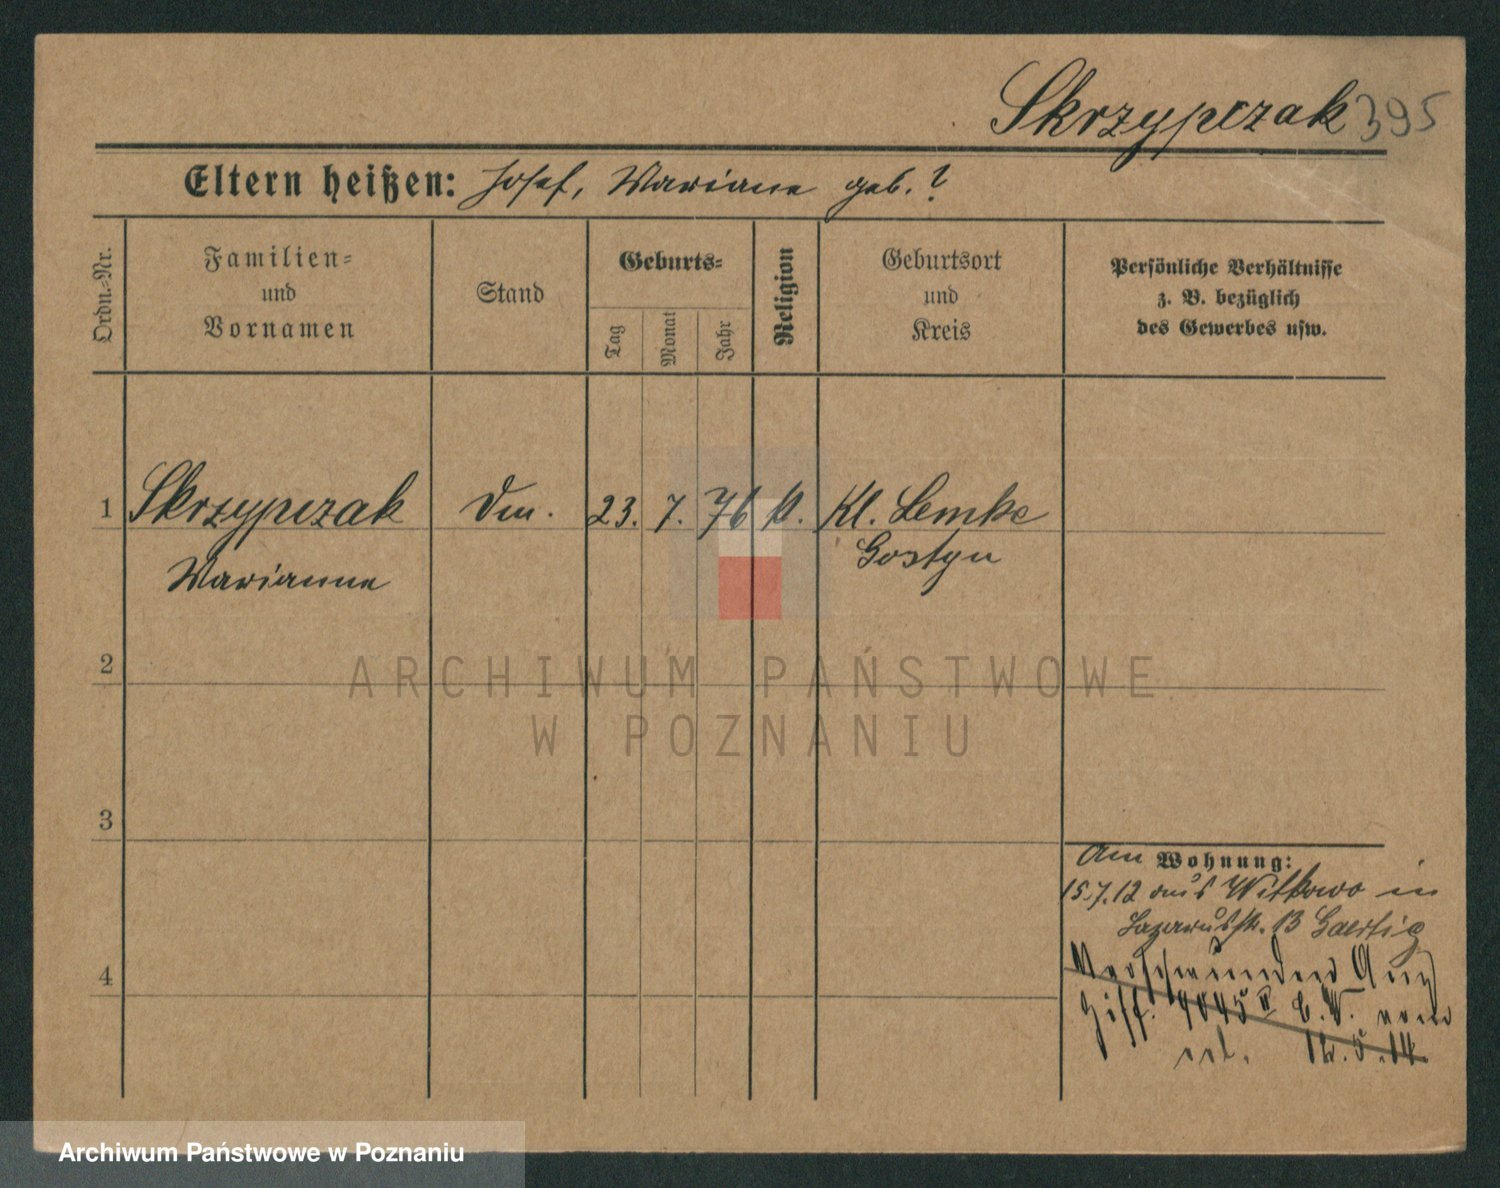 Skrzypczak 395
Eltern heißen: Josef, Mariane geb. ?
Ordn.-Nr.
Familien-
und
Vornamen
Stand
Geburts-
Tag
Monat
Jahr
Religion
Geburtsort
und
Kreis
Persönliche Verhältnisse
z. B. bezüglich
des Gewerbes usw.
1 Skrzypczak Dm. 23. 7. 76 k. Kl. Lemke
Marianne Gostyn
2
3
4
Am Wohnung:
15.7.12 aus Witkowo in
Lazarusstr. 13 Gaertig
Verschwunden Anz
4045 II C.V. vom
ARCHIWUM PAŃSTWOWE
W POZNANIU
Archiwum Państwowe w Poznaniu